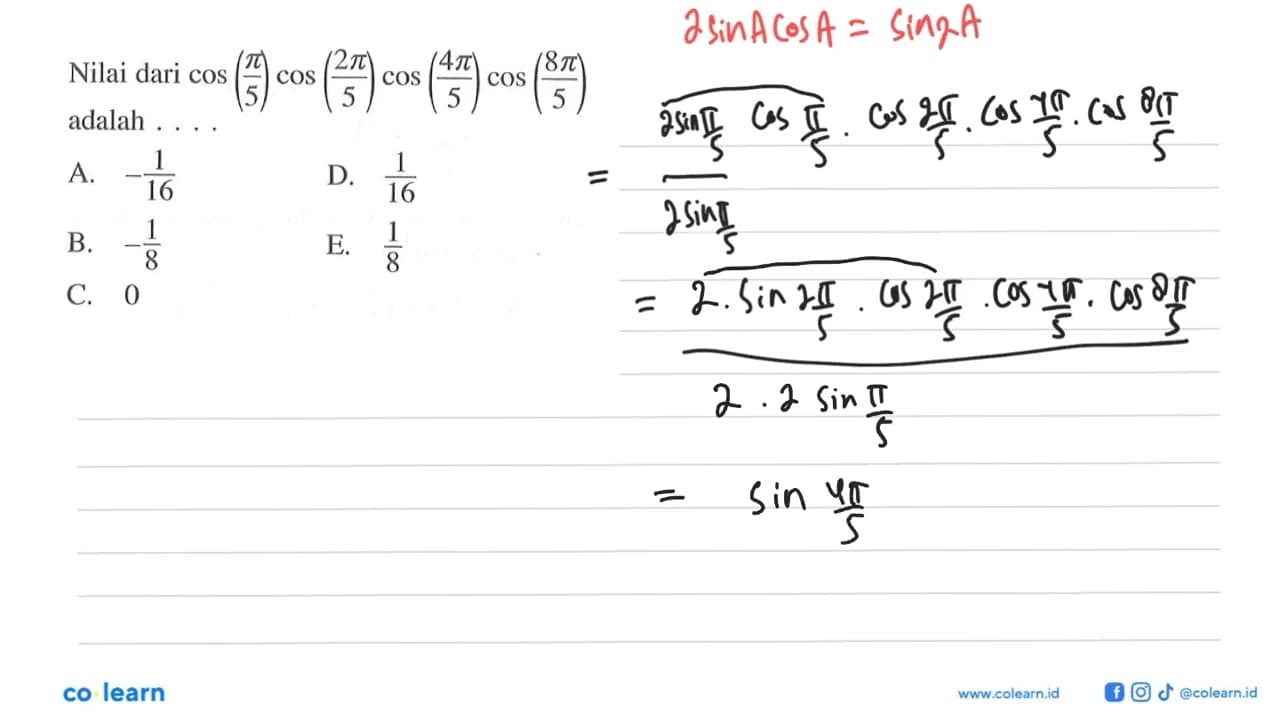 2 sin A cos A = sin 2A
Nilai dari cos (π/5) cos (2π/5) cos (4π/5) cos (8π/5)
adalah . . . .
A. -1/16
B. -1/8
C. 0
D. 1/16
E. 1/8
= 2 sin π/5 cos π/5 . cos 2π/5 . cos 4π/5 . cos 8π/5
2 sin π/5
= 2 . sin 2π/5 . cos 2π/5 . cos 4π/5 . cos 8π/5
2 . 2 sin π/5
= sin 4π/5
co learn
www.colearn.id
@colearn.id